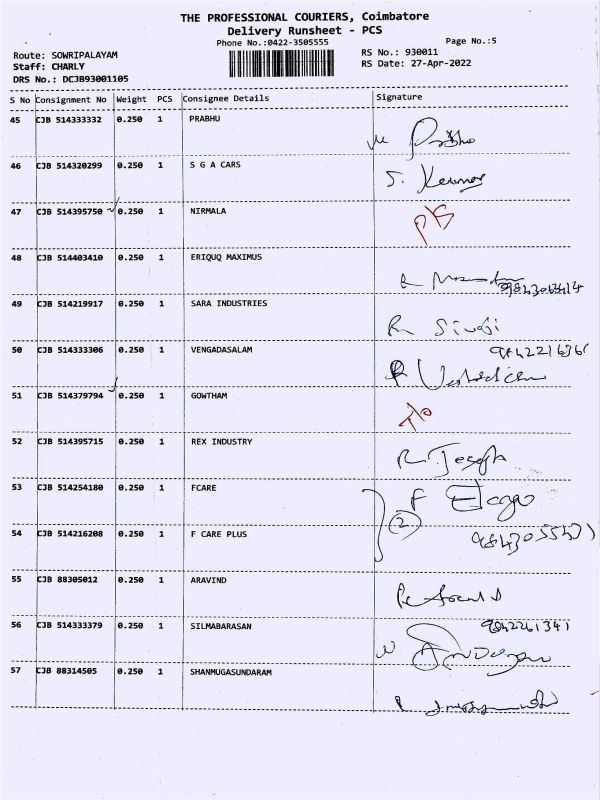 THE PROFESSIONAL COURIERS, Coimbatore
Delivery Runsheet - PCS
Phone No.:0422-3505555
Page No.:5
Route: SOWRIPALAYAM
RS No.: 930011
Staff: CHARLY
RS Date: 27-Apr-2022
DRS No.: DCJB93001105
S No Consignment No Weight PCS Consignee Details Signature
45 CJB 514333332 0.250 1 PRABHU
46 CJB 514320299 0.250 1 S G A CARS S. Kumar
47 CJB 514395750 0.250 1 NIRMALA
48 CJB 514403410 0.250 1 ERIQUQ MAXIMUS
49 CJB 514219917 0.250 1 SARA INDUSTRIES
50 CJB 514333306 0.250 1 VENGADASALAM
51 CJB 514379794 0.250 1 GOWTHAM
52 CJB 514395715 0.250 1 REX INDUSTRY R. Joseph
53 CJB 514254180 0.250 1 FCARE
(2)
54 CJB 514216208 0.250 1 F CARE PLUS
55 CJB 88305012 0.250 1 ARAVIND
56 CJB 514333379 0.250 1 SILMABARASAN 9842261341
57 CJB 88314505 0.250 1 SHANMUGASUNDARAM